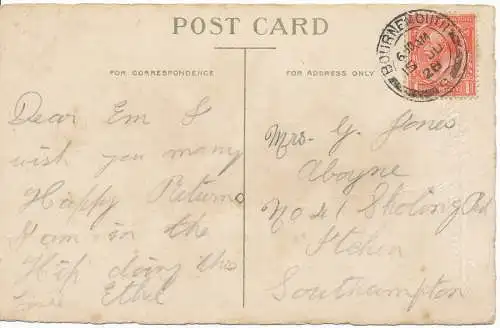 POST CARD
FOR CORRESPONDENCE
FOR ADDRESS ONLY
BOURNEMOUTH
6.30 AM
15 JU
28
Dear Em I
wish you many
Happy Return
I am in the
Hip doing this
Ethel
Mrs. G. Jones
Aboyne
No 41 Sholing Rd
Itchen
Southampton